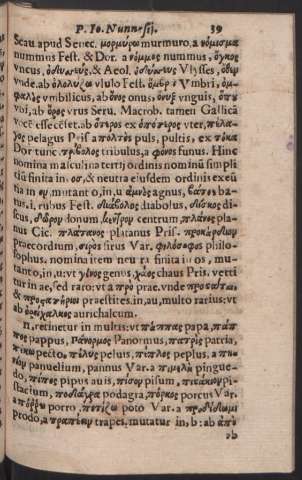 P. Io. Nunnesij. 39
Scau. apud Senec. μορμύρω murmuro, a νόμισμα
nummus Fest. & Dor. a νόμμος nummus, ὄγκος
vncus, & Aeol. Vlysses,
vnde. ab ὀλολύζω vlulo Fest. Vmbri, ὀμ-
φαλὸς vmbilicus, ab ὄνος onus, ὄνυξ vnguis,
ab vrus Seru. Macrob. tamen Gallicā
vocē esse cēset. ab vter,
γος pelagus Pris. a πολτὸς puls, pultis, ex τόκα
Dor tunc τρίβολος tribulus, a φόνος funus. Hinc
nomina masculina tertij ordinis nominū simpli
ciū finita in os, & neutra eiusdem ordinis exeū
tia in ον, mutant o, in, u ἀμνὸς agnus, βάτος ba-
tus. i. rubus Fest. διάβολος diabolus, δίσκος di-
scus, δῶρον donum, κέντρον centrum, πλάνος pla-
nus Cic. πλάτανος platanus Pris. προκάρδιον
praecordium, σιρὸς sirus Var. φιλόσοφος philo-
sophus. nomina item neutra finita in os, mu-
tant o, in, u: vt γένος genus, χάος chaus Pris. verti
tur in ae, sed raro: vt a πρὸ prae. vnde
& praestites. in, au, multo rarius: vt
ab ὀρείχαλκος aurichalcum.
π, retinetur in multis: vt πάππας papa, πάπ
πος pappus, Πάνορμος Panormus, πατρὶς patria,
πέκω pecto, πέπλος peplus, a
panuelium, pannus Var. a πιμελὴ pingue-
do, πίπος pipus auis, πίσον pisum, πιστάκιον pi-
stacium, ποδάγρα podagra, πόρκος porcus Var.
a πόρρω porro, ποτίζω poto Var. a προδίδωμι
prodo, a τράπεζαν trapes, mutatur in, b: ab ἀπὸ
ab